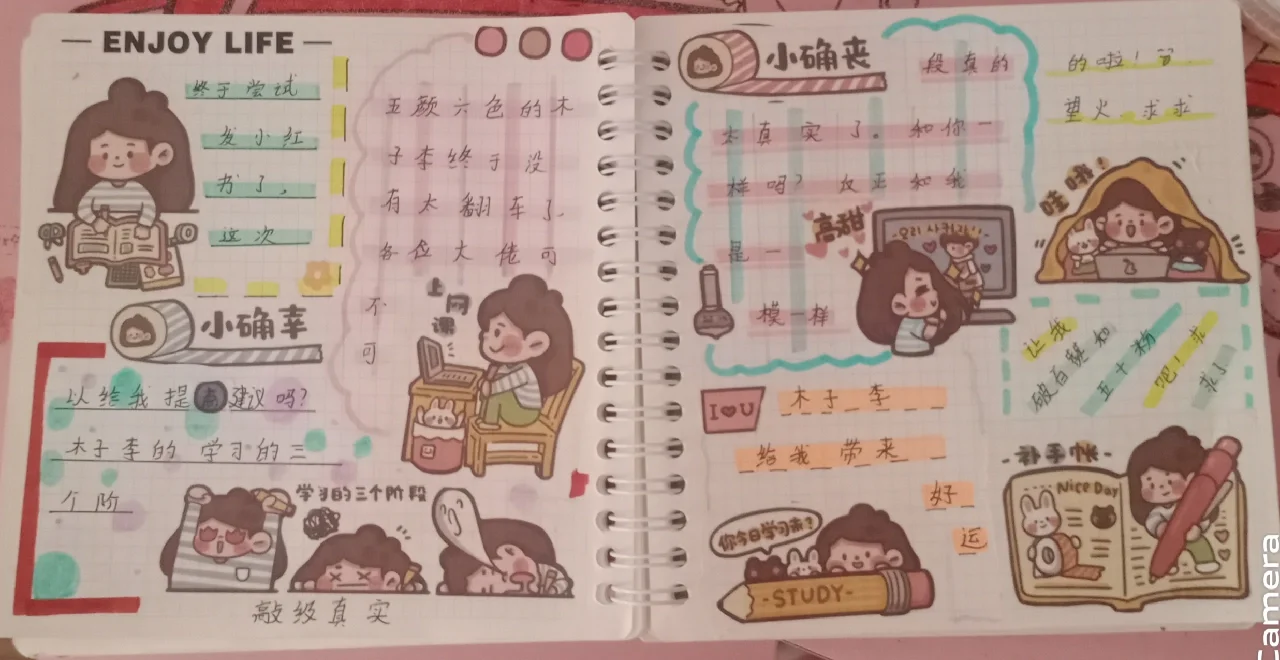 — ENJOY LIFE —
终于尝试
发小红
书了,
这次
五颜六色的木
子李终于没
有太翻车了.
各位大佬可
不
可
上
网
课
小确幸
以给我提点建议吗?
木子李的 学习的三
个阶
学习的三个阶段
敲级真实
小确丧
段真的
太真实了。和你一
样吗? 反正和我
是一
模一样
高甜
우리 사귀자!!
I♥U
木子李
给我带来
好
运
你今日学习未?
-STUDY-
的啦!
望火 求求
哇哦!
让我
破百赞和
五十粉
吧! 求
求了
-补手帐-
Nice Day
Camera